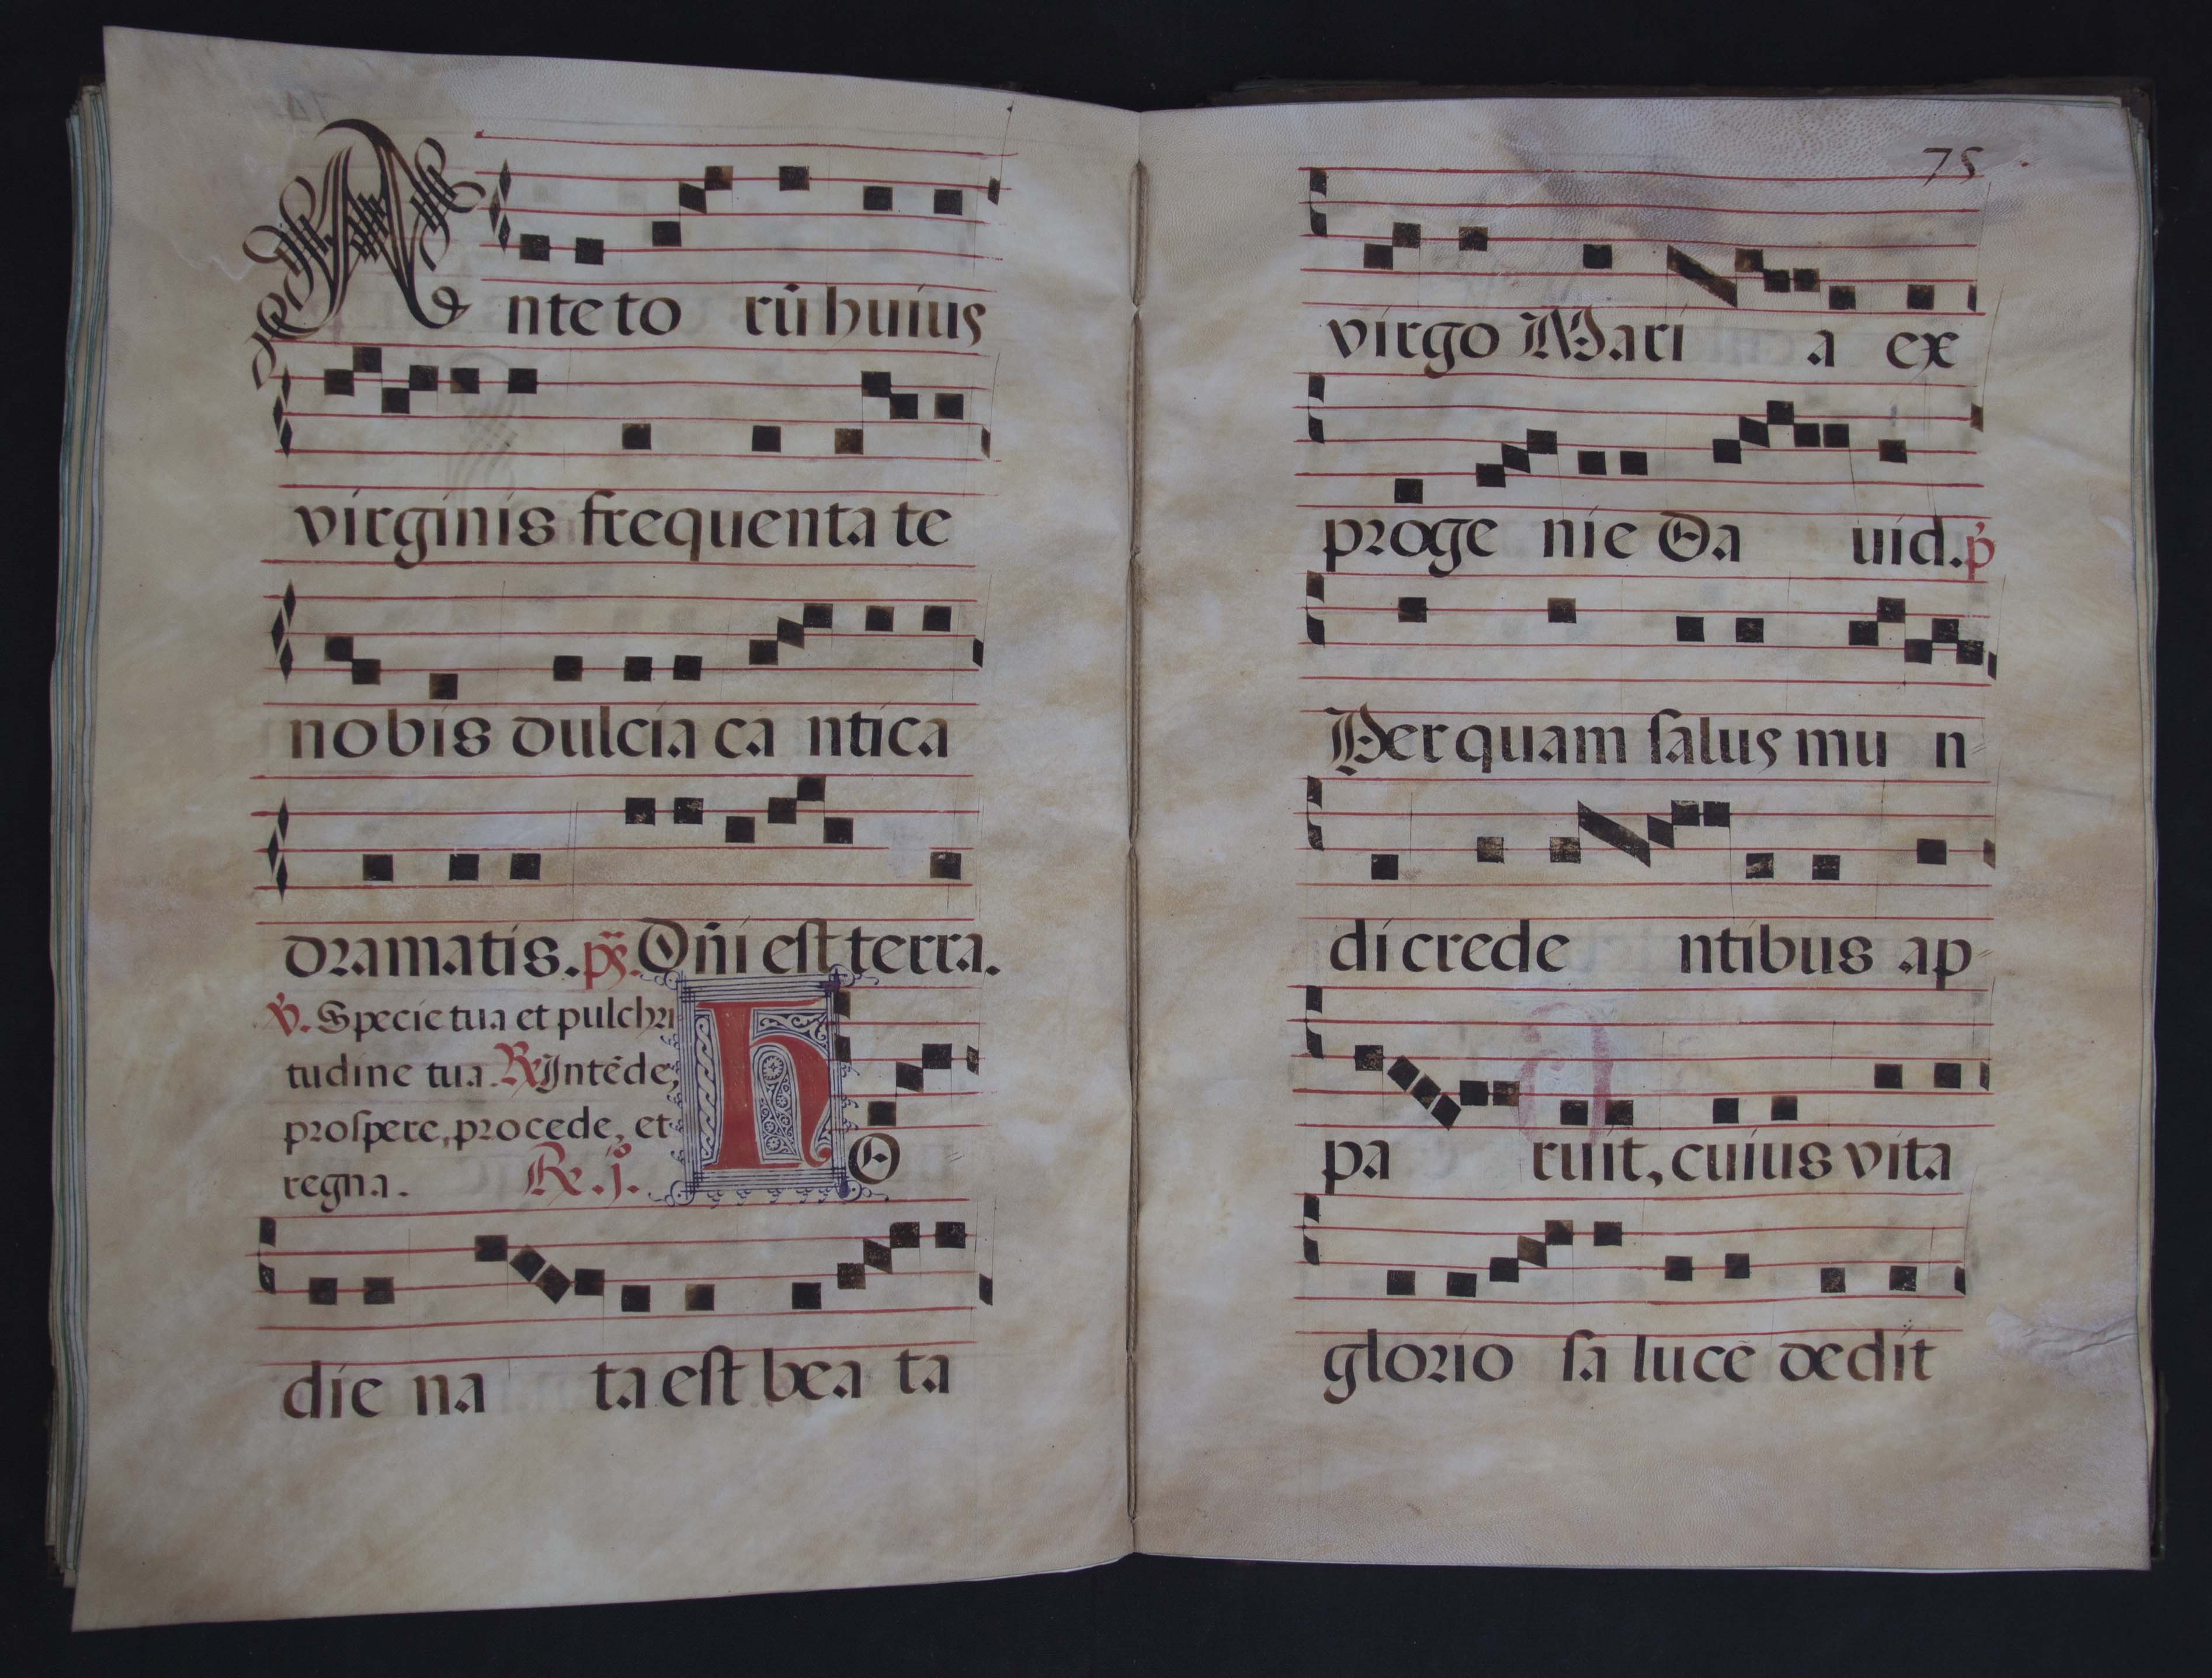 Ante torū huius
virginis frequenta te
nobis dulcia ca ntica
dramatis. ps. Dn̄i est terra.
V. Specie tua et pulchri
tudine tua. R Intēde,
prospere, procede, et
regna. R. j.
HO
die na ta est bea ta
75
virgo Mari a ex
proge nie Da uid. p
Per quam salus mu n=
di crede ntibus ap=
pa ruit, cuius vita
glorio sa lucē dedit